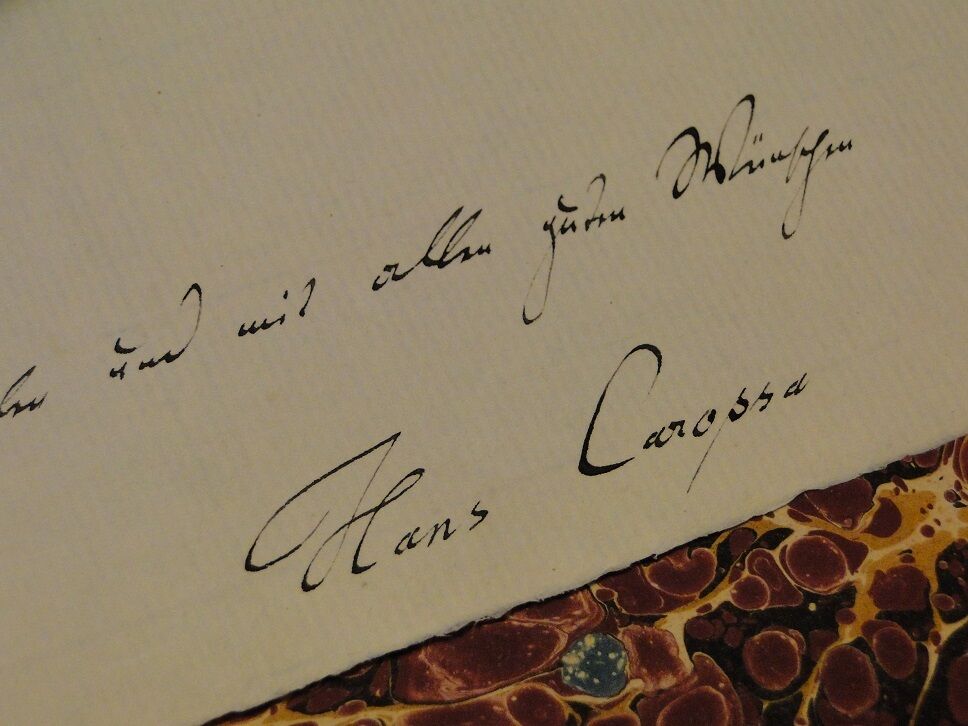 und mit allen guten Wünschen
Hans Carossa